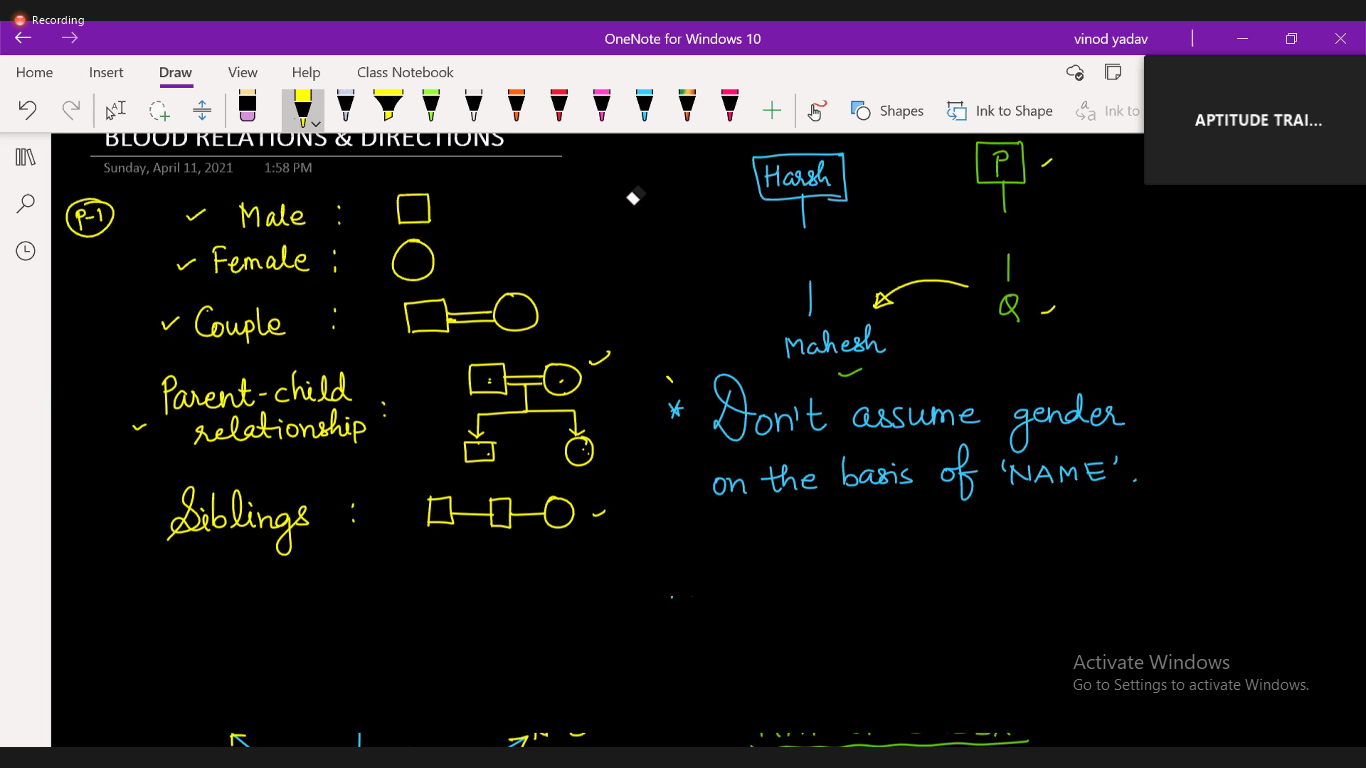 Recording
OneNote for Windows 10
vinod yadav
Home Insert Draw View Help Class Notebook
Shapes Ink to Shape Ink to
APTITUDE TRAI...
BLOOD RELATIONS & DIRECTIONS
Sunday, April 11, 2021 1:58 PM
P-1
Male :
Female :
Couple :
Parent-child
relationship :
Siblings :
Harsh
P
Q
Mahesh
* Don't assume gender
on the basis of 'NAME'.
Activate Windows
Go to Settings to activate Windows.